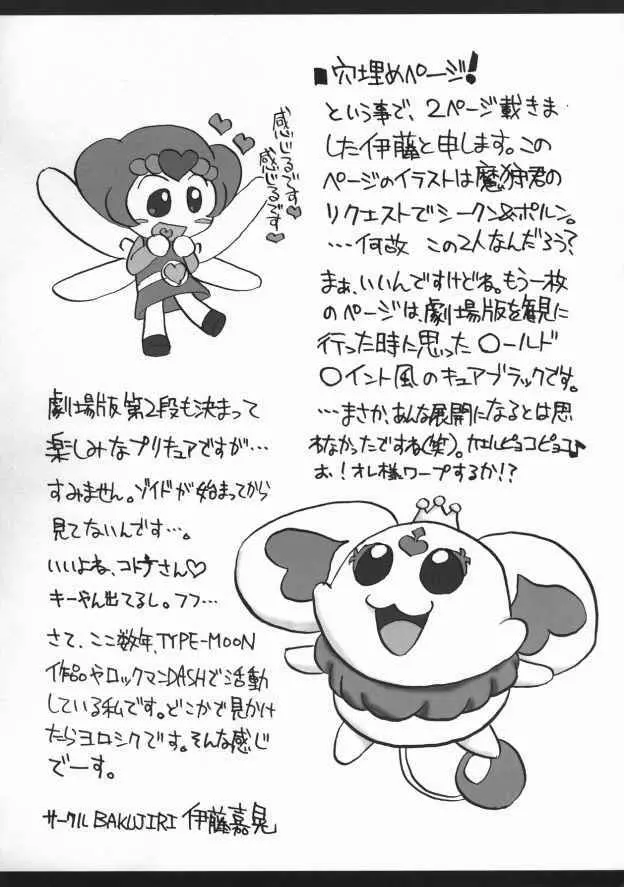 ■穴埋めページ！
という事で、2ページ載きま
した伊藤と申します。この
ページのイラストは魔狩君の
リクエストでシークン&ポルン。
…何故 この2人なんだろう?
まぁ、いいんですけどね。もう一枚
のページは、劇場版を観に
行った時に思った〇ールド
〇イント風のキュアブラックです。
…まさか、あんな展開になるとは思
わなかったですね(笑)。カエルピョコピョコ♪
お！オレ様ワープするか!?
感じるです
感じるです
劇場版第2段も決まって
楽しみなプリキュアですが…
すみません。ゾイドが始まってから
見てないんです…。
いいよね、コトナさん♡
キーやん出てるし。フフ…
さて、ここ数年、TYPE-MOON
作品やロックマンDASHで活動
している私です。どこかで見かけ
たらヨロシクです。そんな感じ
でーす。
サークル BAKUJIRI 伊藤嘉晃